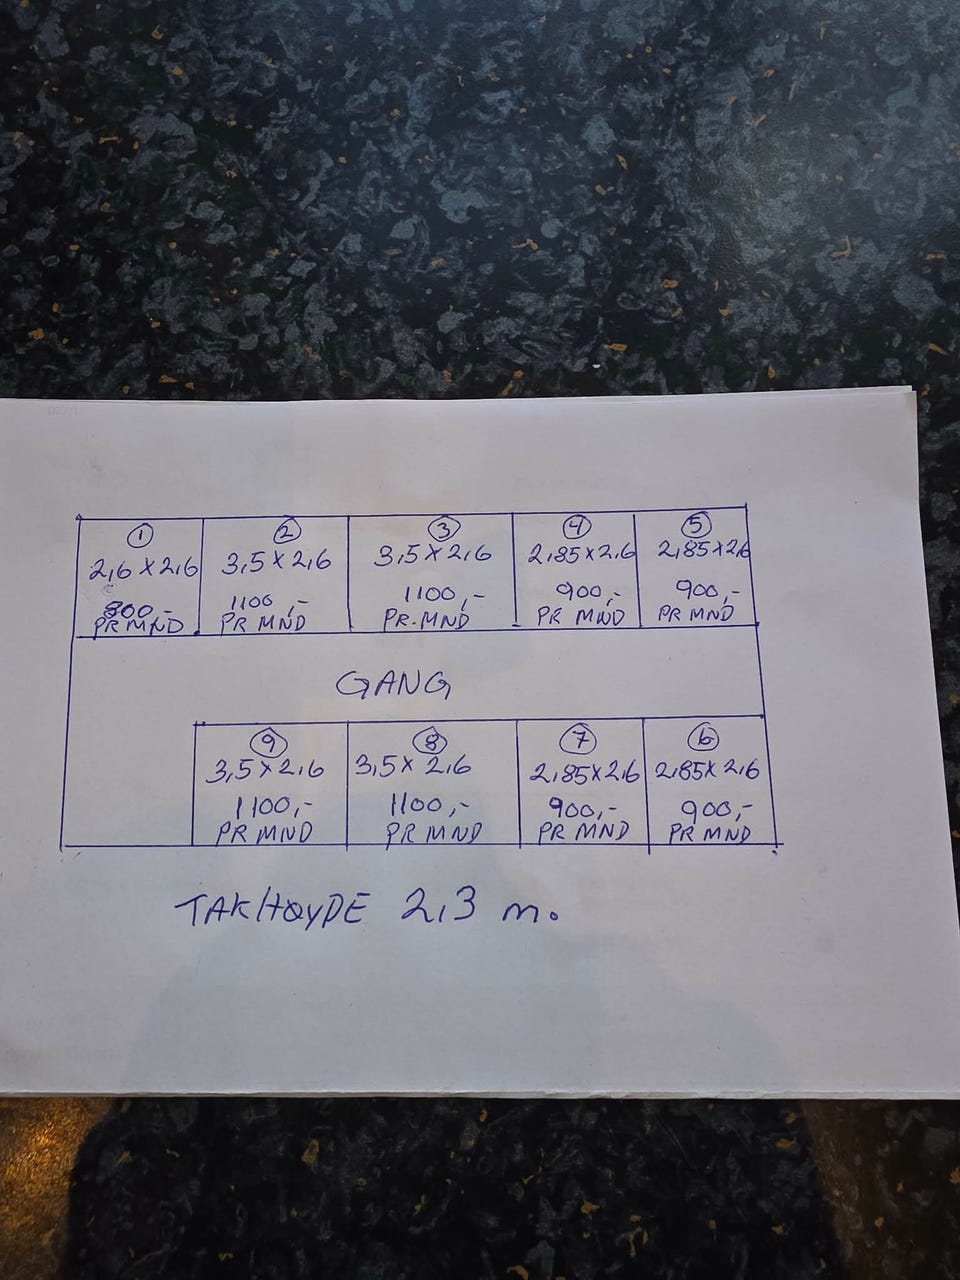 1
2,6 X 2,6
800,-
PR MND
2
3,5 X 2,6
1100,-
PR MND
3
3,5 X 2,6
1100,-
PR. MND
4
2,85 X 2,6
900,-
PR MND
5
2,85 X 2,6
900,-
PR MND
GANG
9
3,5 X 2,6
1100,-
PR MND
8
3,5 X 2,6
1100,-
PR MND
7
2,85 X 2,6
900,-
PR MND
6
2,85 X 2,6
900,-
PR MND
TAKHØYDE 2,3 m.